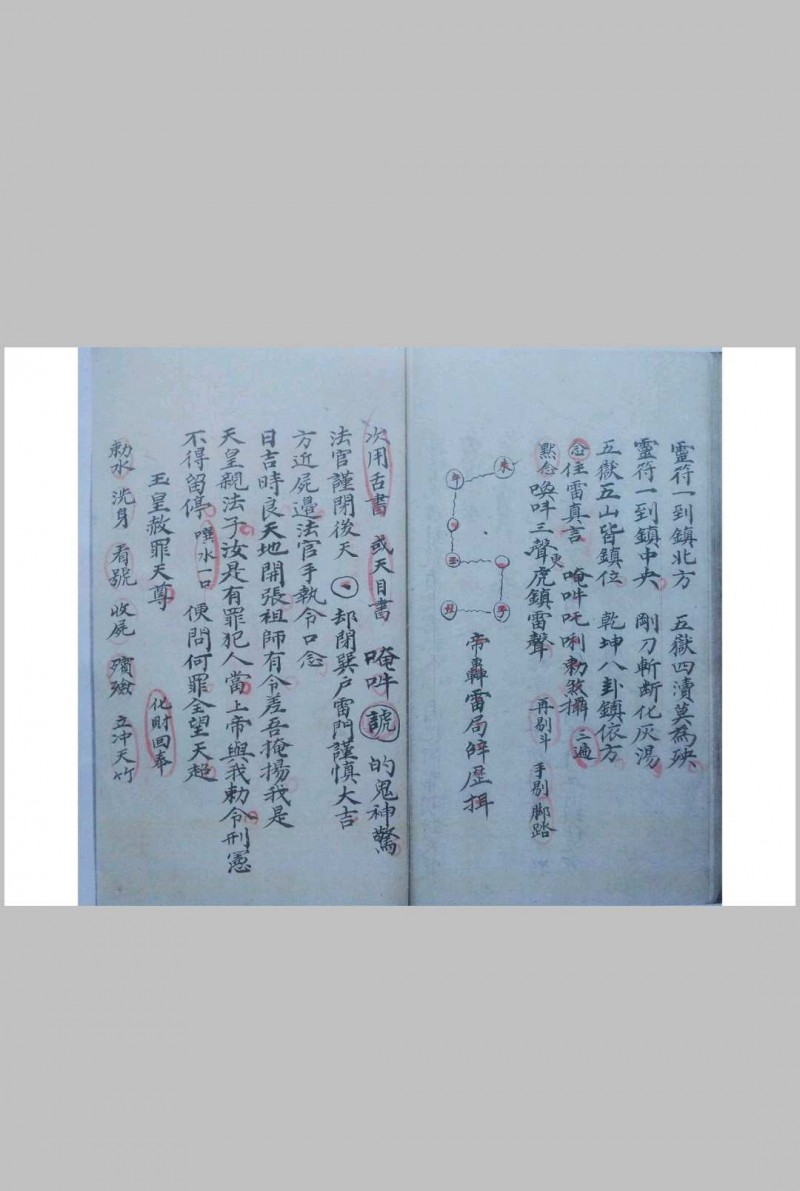 靈符一到鎮北方　五嶽四瀆莫為殃
靈符一到鎮中央　剛刀斬断化灰湯
五嶽五山皆鎮位　乾坤八卦鎮依方
念住雷真言　唵吽吒唎勅煞攝　三遍
默念　喚吽三聲虎鎮雷聲　再剔斗　手剔脚踏
帝轟雷局
次用舌書　或天目書　唵吽䝞的鬼神驚
法官謹閉後天　却閉巽户雷門謹慎大吉
方近屍邉法官手執令口念
日吉時良天地開張祖師有令差吾掩揚我是
天皇親法子汝是有罪犯人當上帝與我勅令刑憲
不得留停　噀水一口　便問何罪全望天超
玉皇赦罪天尊　化財回奉
勅水　洗身　看號　收屍　殯殮　立冲天竹